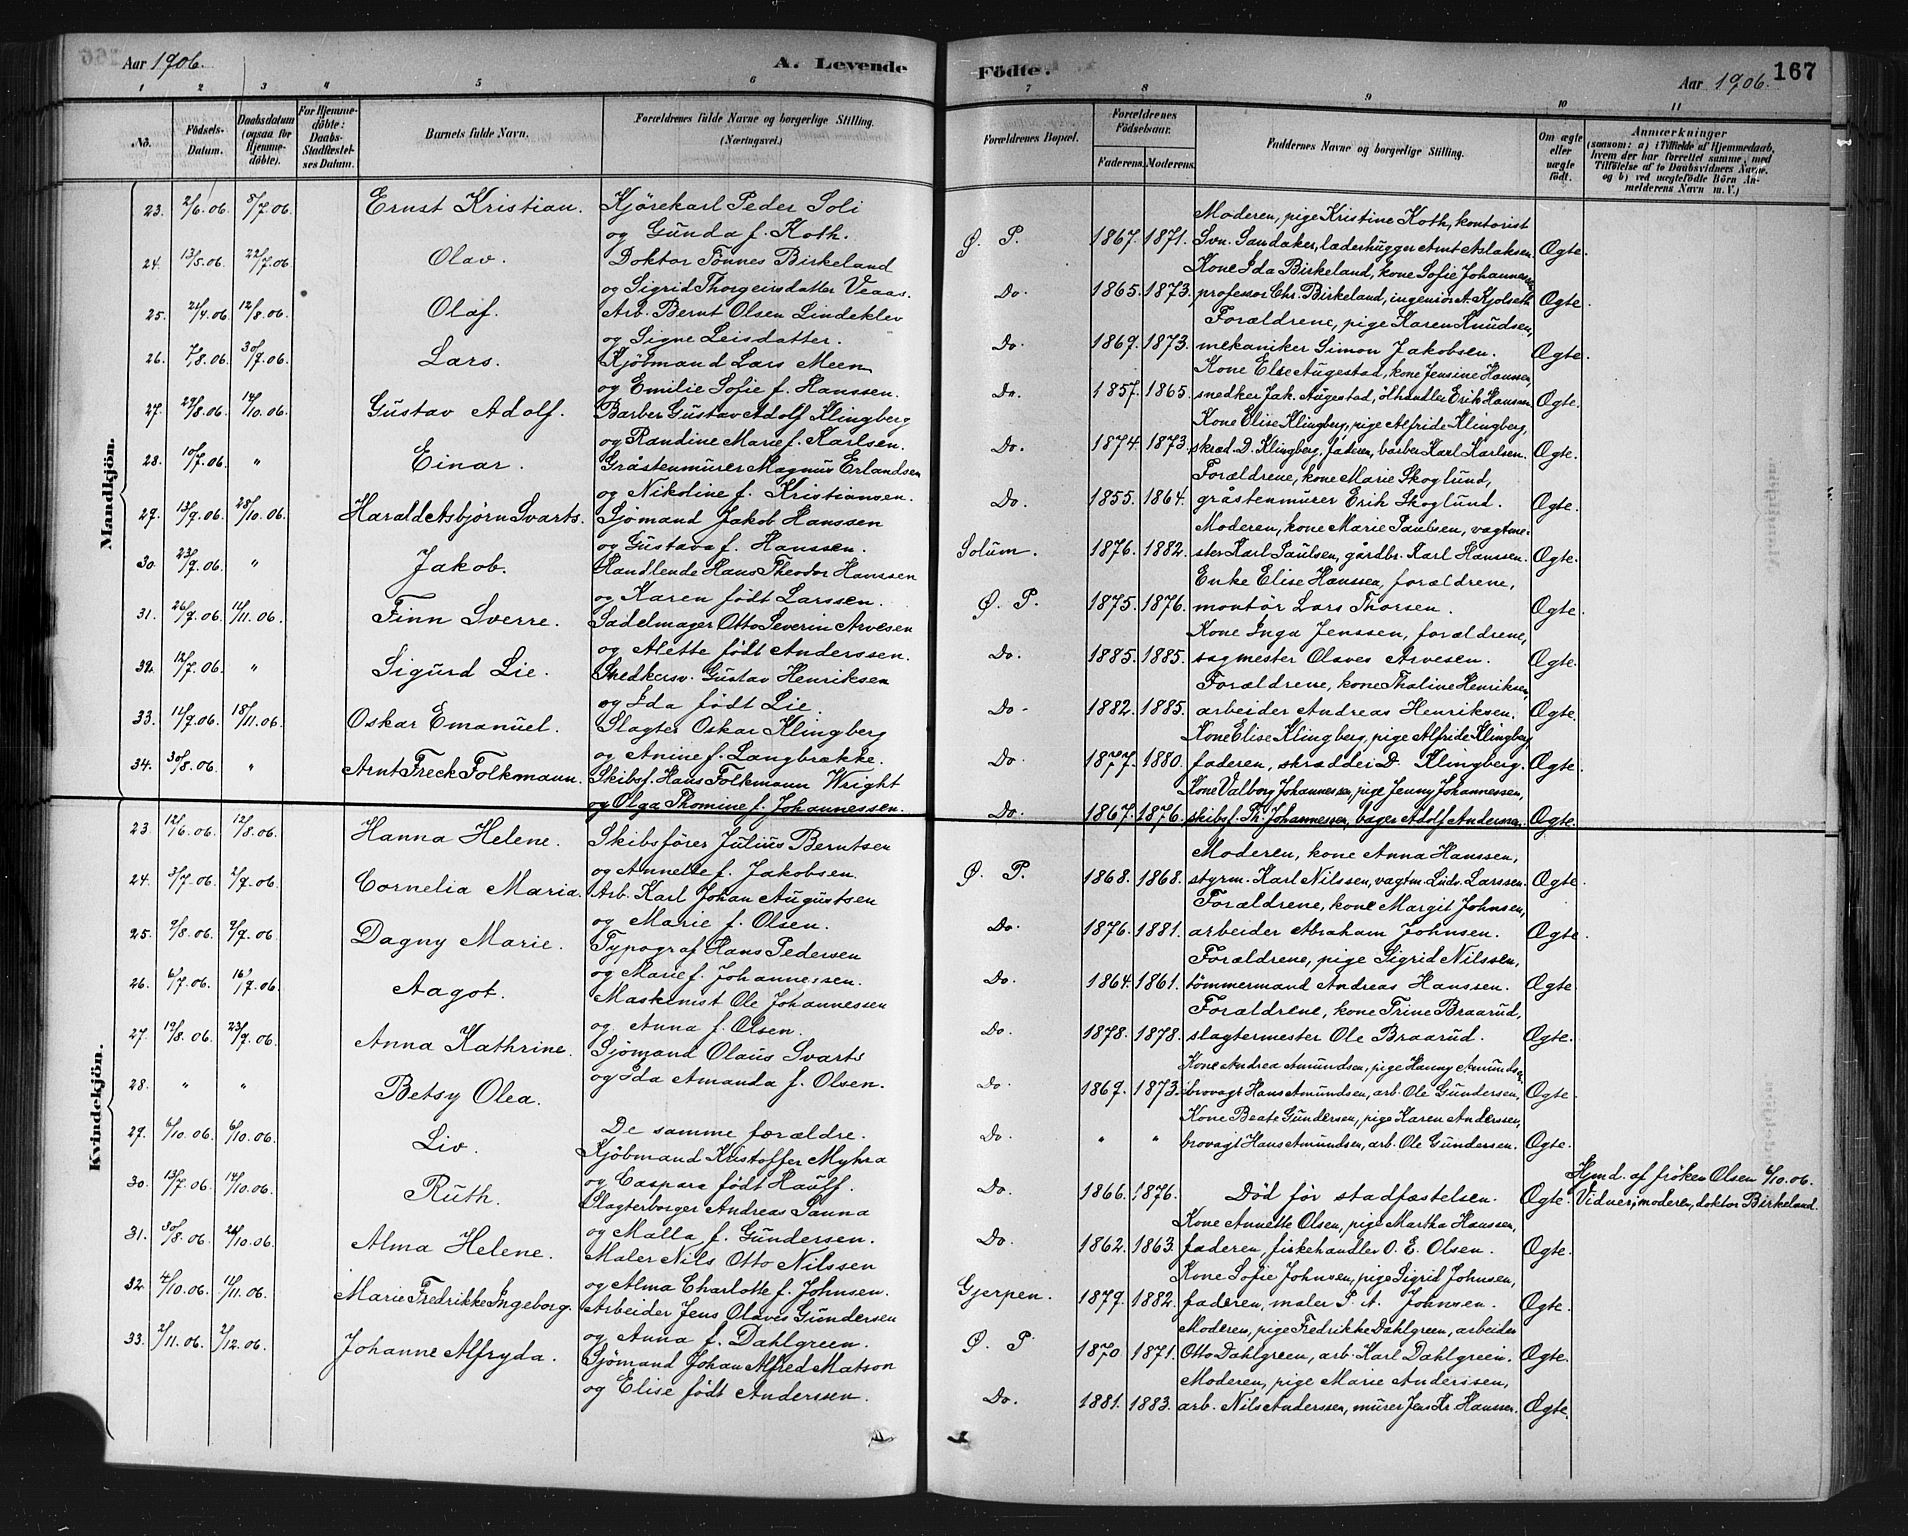 Aar 1906.
A. Levende
1 2 3 4 5 6
No.
Födsels-Datum.
Daabsdatum (ogsaa for Hjemme-döbte).
For Hjemme-döbte: Daabs-Stadfæstel-ses Datum.
Barnets fulde Navn.
Forældrenes fulde Navne og borgerlige Stilling. (Næringsvei.)
Mandkjön.
23. 2/6.06. 8/7.06. Ernst Kristian. Kjörekarl Peder Soli
og Gunda f. Koth.
24. 13/5.06. 22/7.06. Olav. Doktor Tönnes Birkeland
og Sigrid Thorgeirsdatter Veaas.
25. 21/4.06. 12/8.06. Olaf. Arb. Bernt Olsen Lindeklev
og Signe Leisdatter.
26. 7/8.06. 30/9.06. Lars. Kjöbmand Lars Meen
og Emilie Sofie f. Hanssen.
27. 29/8.06. 14/10.06. Gustav Adolf. Barber Gustav Adolf Klingberg
og Randine Marie f. Karlsen.
28. 10/7.06. " Einar. Gråstenmurer Magnus Erlandsen
og Nikoline f. Kristiansen.
29. 13/9.06. 28/10.06. Harald Asbjörn Svarts. Sjömand Jakob Hanssen
og Gustava f. Hanssen.
30. 23/9.06. " Jakob. Handlende Hans Theodor Hanssen
og Karen födt Larssen.
31. 26/9.06. 11/11.06. Finn Sverre. Sadelmager Otto Severin Arvesen
og Alette födt Anderssen.
32. 12/7.06. " Sigurd Lie. Snedkersv. Gustav Henriksen
og Ida födt Lie.
33. 11/9.06. 18/11.06. Oskar Emanuel. Slagter Oskar Klingberg
og Anine f. Langbrække.
34. 30/8.06. " Arnt Freck Folkmann. Skibsf. Hans Folkmann Wright
og Olga Thomine f. Johannessen.
Kvindekjön.
23. 12/6.06. 12/8.06. Hanna Helene. Skibsförer Julius Berntsen
og Annette f. Jakobsen.
24. 3/7.06. 2/9.06. Cornelia Maria. Arb. Karl Johan Augustsen
og Marie f. Olsen.
25. 9/8.06. 9/9.06. Dagny Marie. Typograf Hans Pedersen
og Marie f. Johannessen.
26. 6/7.06. 16/9.06. Aagot. Maskinist Ole Johannessen
og Anna f. Olsen.
27. 19/8.06. 23/9.06. Anna Kathrine. Sjömand Olaus Svarts
og Ida Amanda f. Olsen.
28. " " Betsy Olea.
De samme forældre.
29. 6/10.06. 6/10.06. Liv. Kjöbmand Kristoffer Myhra
og Caspara födt Hauff.
30. 13/7.06. 14/10.06. Ruth. Slagterborger Andreas Sanna
og Malla f. Gundersen.
31. 30/8.06. 21/10.06. Alma Helene. Maler Nils Otto Nilssen
og Alma Charlotte f. Johnsen.
32. 4/10.06. 11/11.06. Marie Fredrikke Ingeborg. Arbeider Jens Olaves Gundersen
og Anna f. Dahlgreen.
33. 2/11.06. 2/12.06. Johanne Alfryda. Sjömand Johan Alfred Matson
og Elise födt Anderssen.
Födte.
Aar 1906. 167
7 8 9 10 11
Forældrenes Bopæl.
Forældrenes Födselsaar.
Faderens. Moderens.
Faddernes Navne og borgerlige Stilling.
Om ægte eller uægte födt.
Anmærkninger
(saasom: a) i Tilfælde af Hjemmedaab,
hvem der har forrettet samme, med
Tilföielse af to Daabsvidners Navne,
og b) ved uægtefödte Börn An-
melderens Navn m. V.)
Moderen, pige Kristine Koth, kontorist
Ø. P. 1867. 1871. Svn. Sandaker, læderhugger Arnt Aslaksen. Ægte.
Kone Ida Birkeland, kone Sofie Johannesen,
Do. 1865. 1873. professor Chr. Birkeland, ingeniör A. Kjolseth. Ægte.
Forældrene, pige Karen Knudsen,
Do. 1869. 1873. mekaniker Simon Jakobsen. Ægte.
Kone Else Augestad, kone Jensine Hanssen,
Do. 1857. 1865. snedker Jak. Augestad, ölhandler Erik Hanssen. Ægte.
Kone Elise Klingberg, pige Alfride Klingberg,
Do. 1874. 1873. skræd. D. Klingberg, faderen, barber Karl Karlsen. Ægte.
Forældrene, kone Marie Skoglund,
Do. 1855. 1864. gråstenmurer Erik Skoglund. Ægte.
Moderen, kone Marie Paulsen, vagtme-
Solum. 1876. 1882. ster Karl Paulsen, gårdbr. Karl Hanssen. Ægte.
Enke Elise Hanssen, forældrene,
Ø. P. 1875. 1876. montör Lars Thorsen. Ægte.
Kone Inga Jenssen, forældrene,
Do. 1885. 1885. sagmester Olaves Arvesen. Ægte.
Forældrene, kone Thaline Henriksen,
Do. 1882. 1885. arbeider Andreas Henriksen. Ægte.
Kone Elise Klingberg, pige Alfride Klingberg
Do. 1877. 1880. faderen, skrædder D. Klingberg. Ægte.
Kone Valborg Johannessen, pige Jenny Johannessen,
Do. 1867. 1876. skibsf. Th. Johannessen, bager Adolf Anderssen. Ægte.
Moderen, kone Anna Hanssen,
Ø. P. 1868. 1868. styrm. Karl Nilssen, vagtm. Ludv. Larssen. Ægte.
Forældrene, kone Margit Johnsen,
Do. 1876. 1881. arbeider Abraham Johnsen. Ægte.
Forældrene, pige Sigrid Nilssen,
Do. 1864. 1861. tömmermand Andreas Hanssen. Ægte
Forældrene, kone Trine Braarud,
Do. 1878. 1878. slagtermester Ole Braarud. Ægte.
Kone Andrea Amundsen, pige Hanny Amundsen
Do. 1869. 1873. brovagt Hans Amundsen, arb. Ole Gundersen, Ægte.
Kone Beate Gundersen, pige Karen Anderssen,
Do. " " brovagt Hans Amundsen, arb. Ole Gundersen. Ægte.
Hjmd. af fröken Olsen 6/10.06.
Do. 1866. 1876. Död för stadfæstelsen. Ægte. Vidner, moderen, doktor Birkeland.
Kone Annette Olsen, pige Martha Hanssen,
Do. 1862. 1863. faderen, fiskehandler O. E. Olsen. Ægte.
Kone Sofie Johnsen, pige Sigrid Johnsen,
Gjerpen. 1879. 1882. faderen, maler S. A. Johnsen. Ægte.
Moderen, pige Fredrikke Dahlgreen, arbeider
Ø. P 1870 1871. Otto Dahlgreen, arb. Karl Dahlgreen. Ægte.
Moderen, pige Marie Anderssen,
Do. 1881. 1883. arb. Nils Anderssen, murer Jens Kr. Hanssen. Ægte.